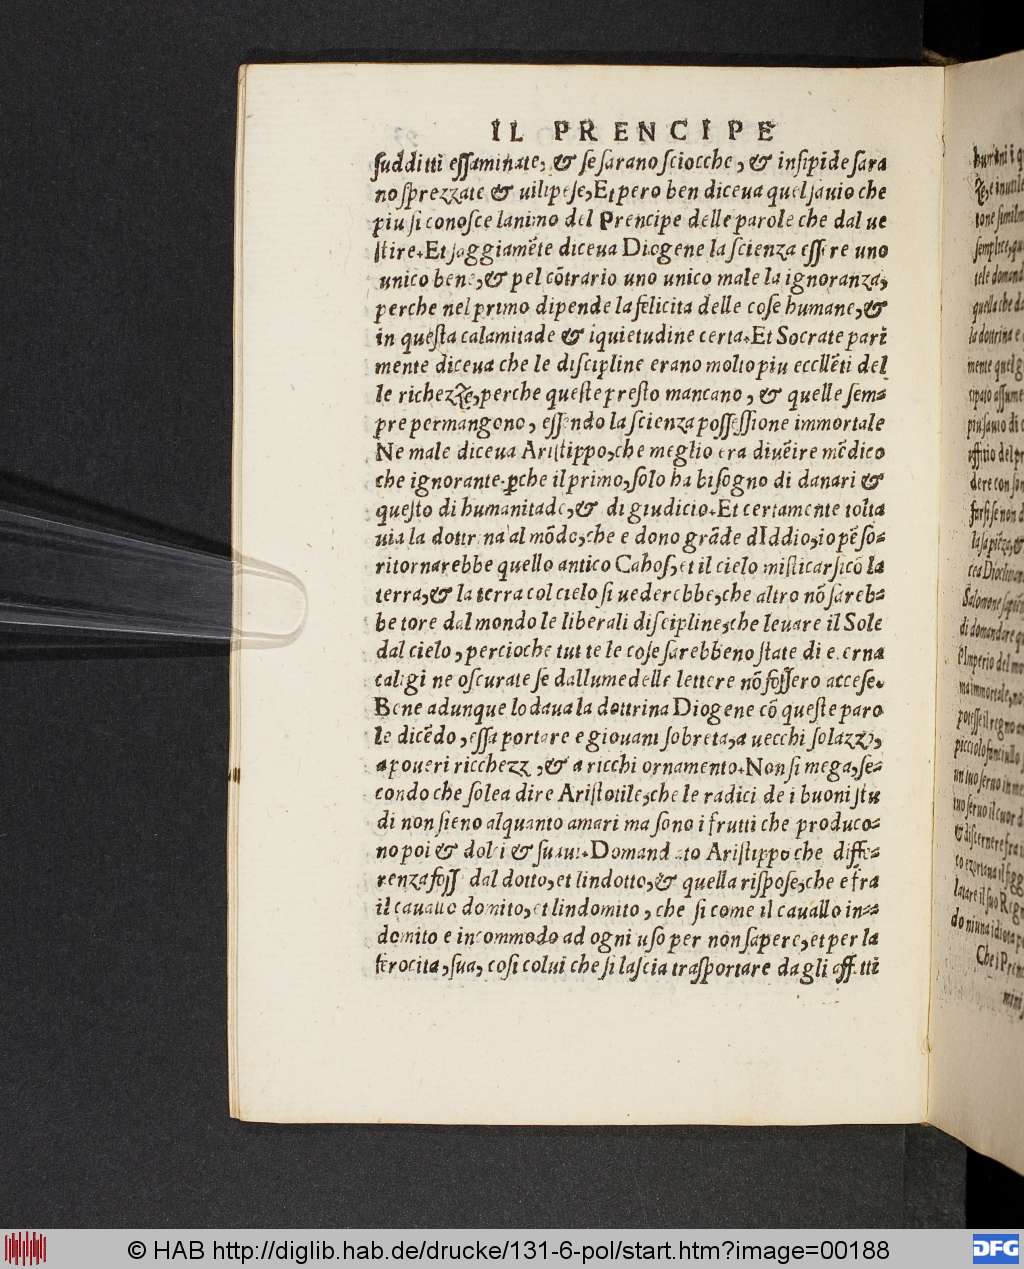 IL PRENCIPE
ſudditti eſſaminate, & ſe ſarano ſciocche, & inſipide ſara
no ſprezzate & uilipeſe, Et pero ben diceua quel ſauio che
piu ſi conoſce lanimo del Prencipe delle parole che dal ue
ſtire. Et ſaggiamẽte diceua Diogene la ſcienza eſſere uno
unico bene, & pel cõtrario uno unico male la ignoranza,
perche nel primo dipende la felicita delle coſe humane, &
in queſta calamitade & iquietudine certa. Et Socrate pari
mente diceua che le diſcipline erano molto piu eccllẽti del
le richezze, perche queſte preſto mancano, & quelle ſem-
pre permangono, eſſendo la ſcienza poſſeſſione immortale
Ne male diceua Ariſtippo, che meglio era diuẽire mẽdico
che ignorante. ꝑche il primo, ſolo ha biſogno di danari &
queſto di humanitade, & di giudicio. Et certamente tolta
uia la dottrina al mõdo, che e dono grãde dIddio, io pẽſo-
ritornarebbe quello antico Cahos, et il cielo miſticarſi cõ la
terra, & la terra col cielo ſi uederebbe, che altro nõ ſareb-
be tore dal mondo le liberali diſcipline, che leuare il Sole
dal cielo, percioche tutte le coſe ſarebbeno ſtate di eterna
caligine oſcurate ſe dal lume delle lettere nõ foſſero acceſe.
Bene adunque lodaua la dottrina Diogene cõ queſte paro
le dicẽdo, eſſa portare e giouani ſobreta, a uecchi ſolazzo,
a poueri ricchezze, & a ricchi ornamento. Non ſi mega, ſe-
condo che ſolea dire Ariſtotile, che le radici de i buoni ſtu
di non ſieno alquanto amari ma ſono i frutti che produco-
no poi & dolci & ſuaui. Domandato Ariſtippo che diffe-
renza foſſe dal dotto, et lindotto, & quella riſpoſe, che e fra
il cauallo domito, et lindomito, che ſi come il cauallo in-
domito e incommodo ad ogni uſo per non ſapere, et per la
ferocita, ſua, coſi colui che ſi laſcia traſportare da gli affetti
© HAB http://diglib.hab.de/drucke/131-6-pol/start.htm?image=00188
DFG